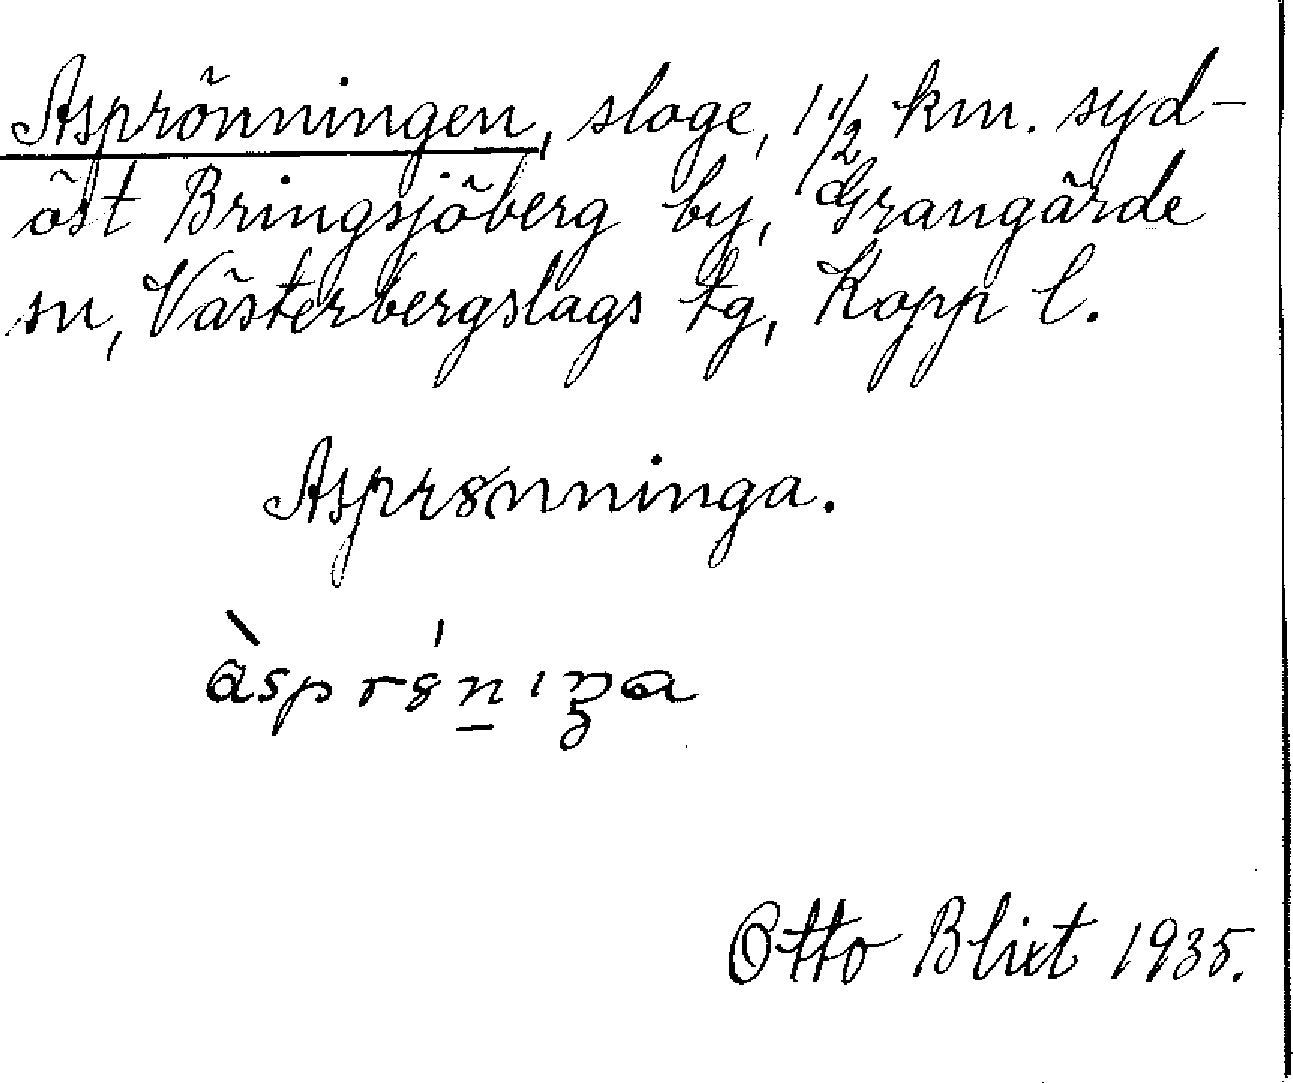 Asprönningen, sloge, 1 1/2 km. syd-
öst Bringsjöberg by, Grangärde
sn, Västerbergslags tg, Kopp l.
Asprȣnninga.
Otto Blixt 1935.